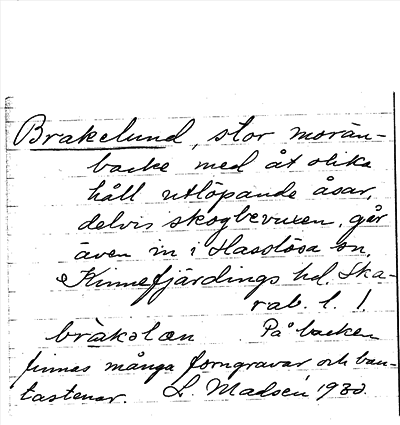 Brakelund, stor morän-
backe med åt olika
håll utlöpande åsar,
delvis skogbevuxen, går
även in i Hasslösa sn,
Kinnefjärdings hd. Ska-
rab. l. !
bràkəlœn På backen
finnas många forngravar och bau-
tastenar L. Madsén 1930.